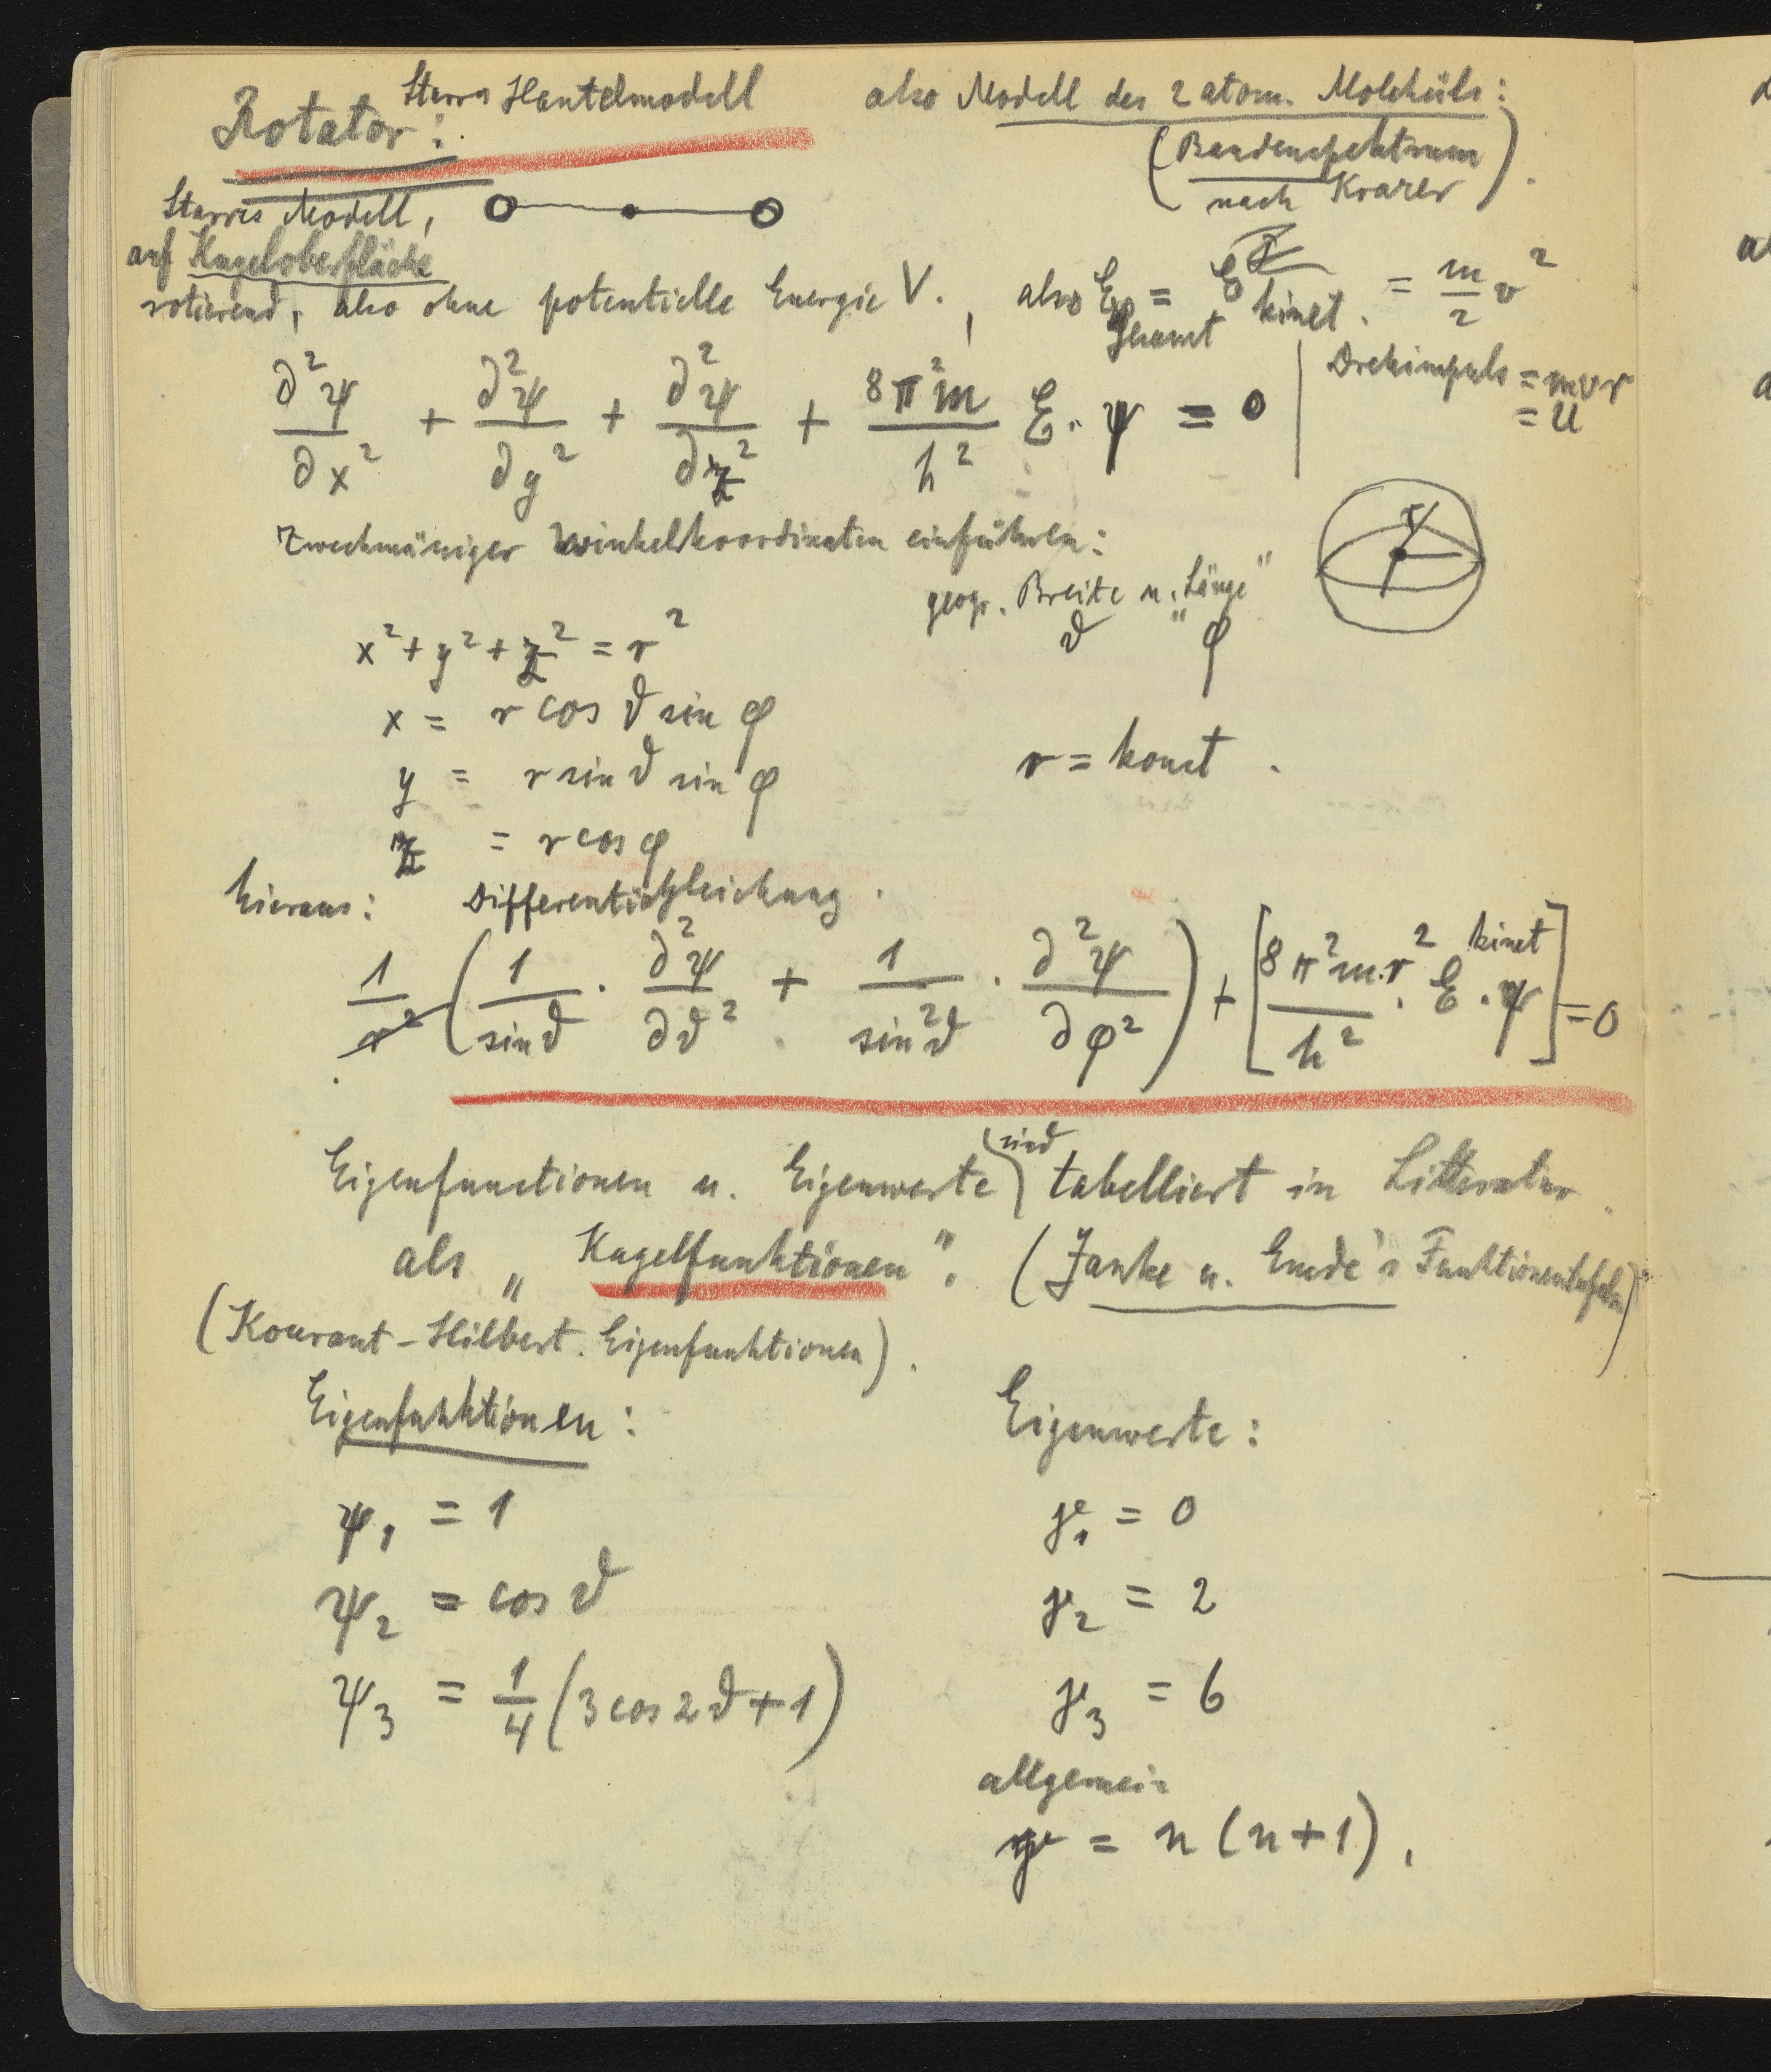 Rotator: Starres Hantelmodell also Modell des 2 atom. Moleküls:
(Bandenspektrum
nach Krazer).
Starres Modell,
auf Kugeloberfläche
rotierend, also ohne potentielle Energie V., also E Gesamt = E kinet. = m/2 v²
∂²ψ/∂x² + ∂²ψ/∂y² + ∂²ψ/∂z² + 8π²m/h² E. ψ = 0
Drehimpuls = mvr
= U
r
Zweckmäsiger Winkelkoordinaten einführen:
geogr. Breite u. „Länge"
ϑ φ
x² + y² + z² = r²
x = r cos ϑ sin φ
y = r sin ϑ sin φ
r = konst.
z = r cos φ
hieraus: Differentialgleichung.
1/r² (1/sin ϑ · ∂²ψ/∂ϑ² + 1/sin²ϑ · ∂²ψ/∂φ²) + [8π²m.r²/h² · E kinet · ψ] = 0
Eigenfunctionen u. Eigenwerte sind tabelliert in Litteratur
als „Kugelfunktionen". (Janke u. Emde's Funktionentafeln)
(Kourant-Hilbert. Eigenfunktionen).
Eigenfunktionen: Eigenwerte:
ψ₁ = 1 γ₁ = 0
ψ₂ = cos ϑ γ₂ = 2
ψ₃ = 1/4 (3 cos 2ϑ + 1) γ₃ = 6
allgemein
γ = n (n+1).